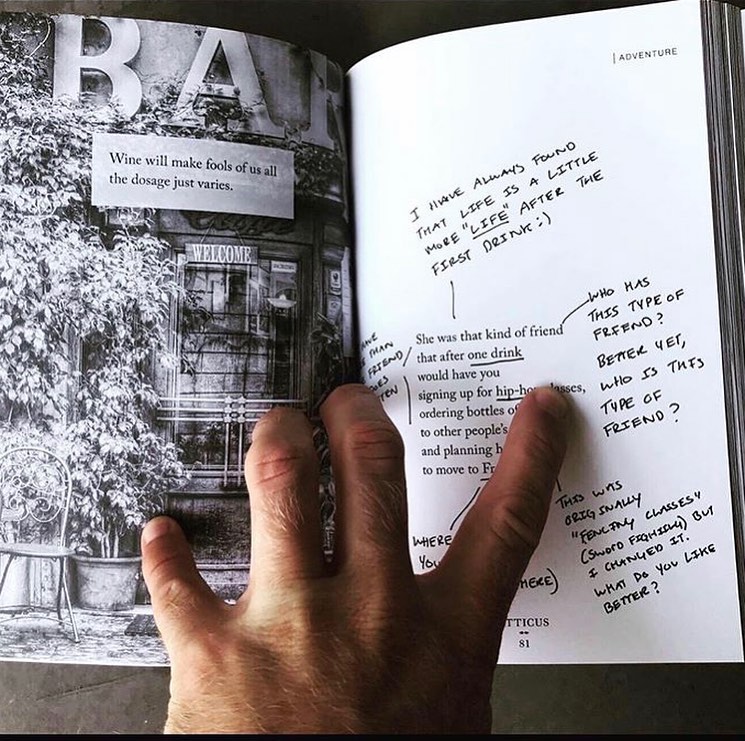 BAR
Wine will make fools of us all
the dosage just varies.
WELCOME
| ADVENTURE
I HAVE ALWAYS FOUND
THAT LIFE IS A LITTLE
MORE "LIFE" AFTER THE
FIRST DRINK :)
She was that kind of friend
that after one drink
would have you
signing up for hip-hop classes,
ordering bottles
to other people's
and planning
to move to
WHO HAS
THIS TYPE OF
FRIEND?
BETTER YET,
WHO IS THIS
TYPE OF
FRIEND?
THAN
FRIEND
WHERE
YOU
HERE)
THIS WAS
ORIGINALLY
"FENCING CLASSES"
(SWORD FIGHTING) BUT
I CHANGED IT.
WHAT DO YOU LIKE
BETTER?
TTICUS
81